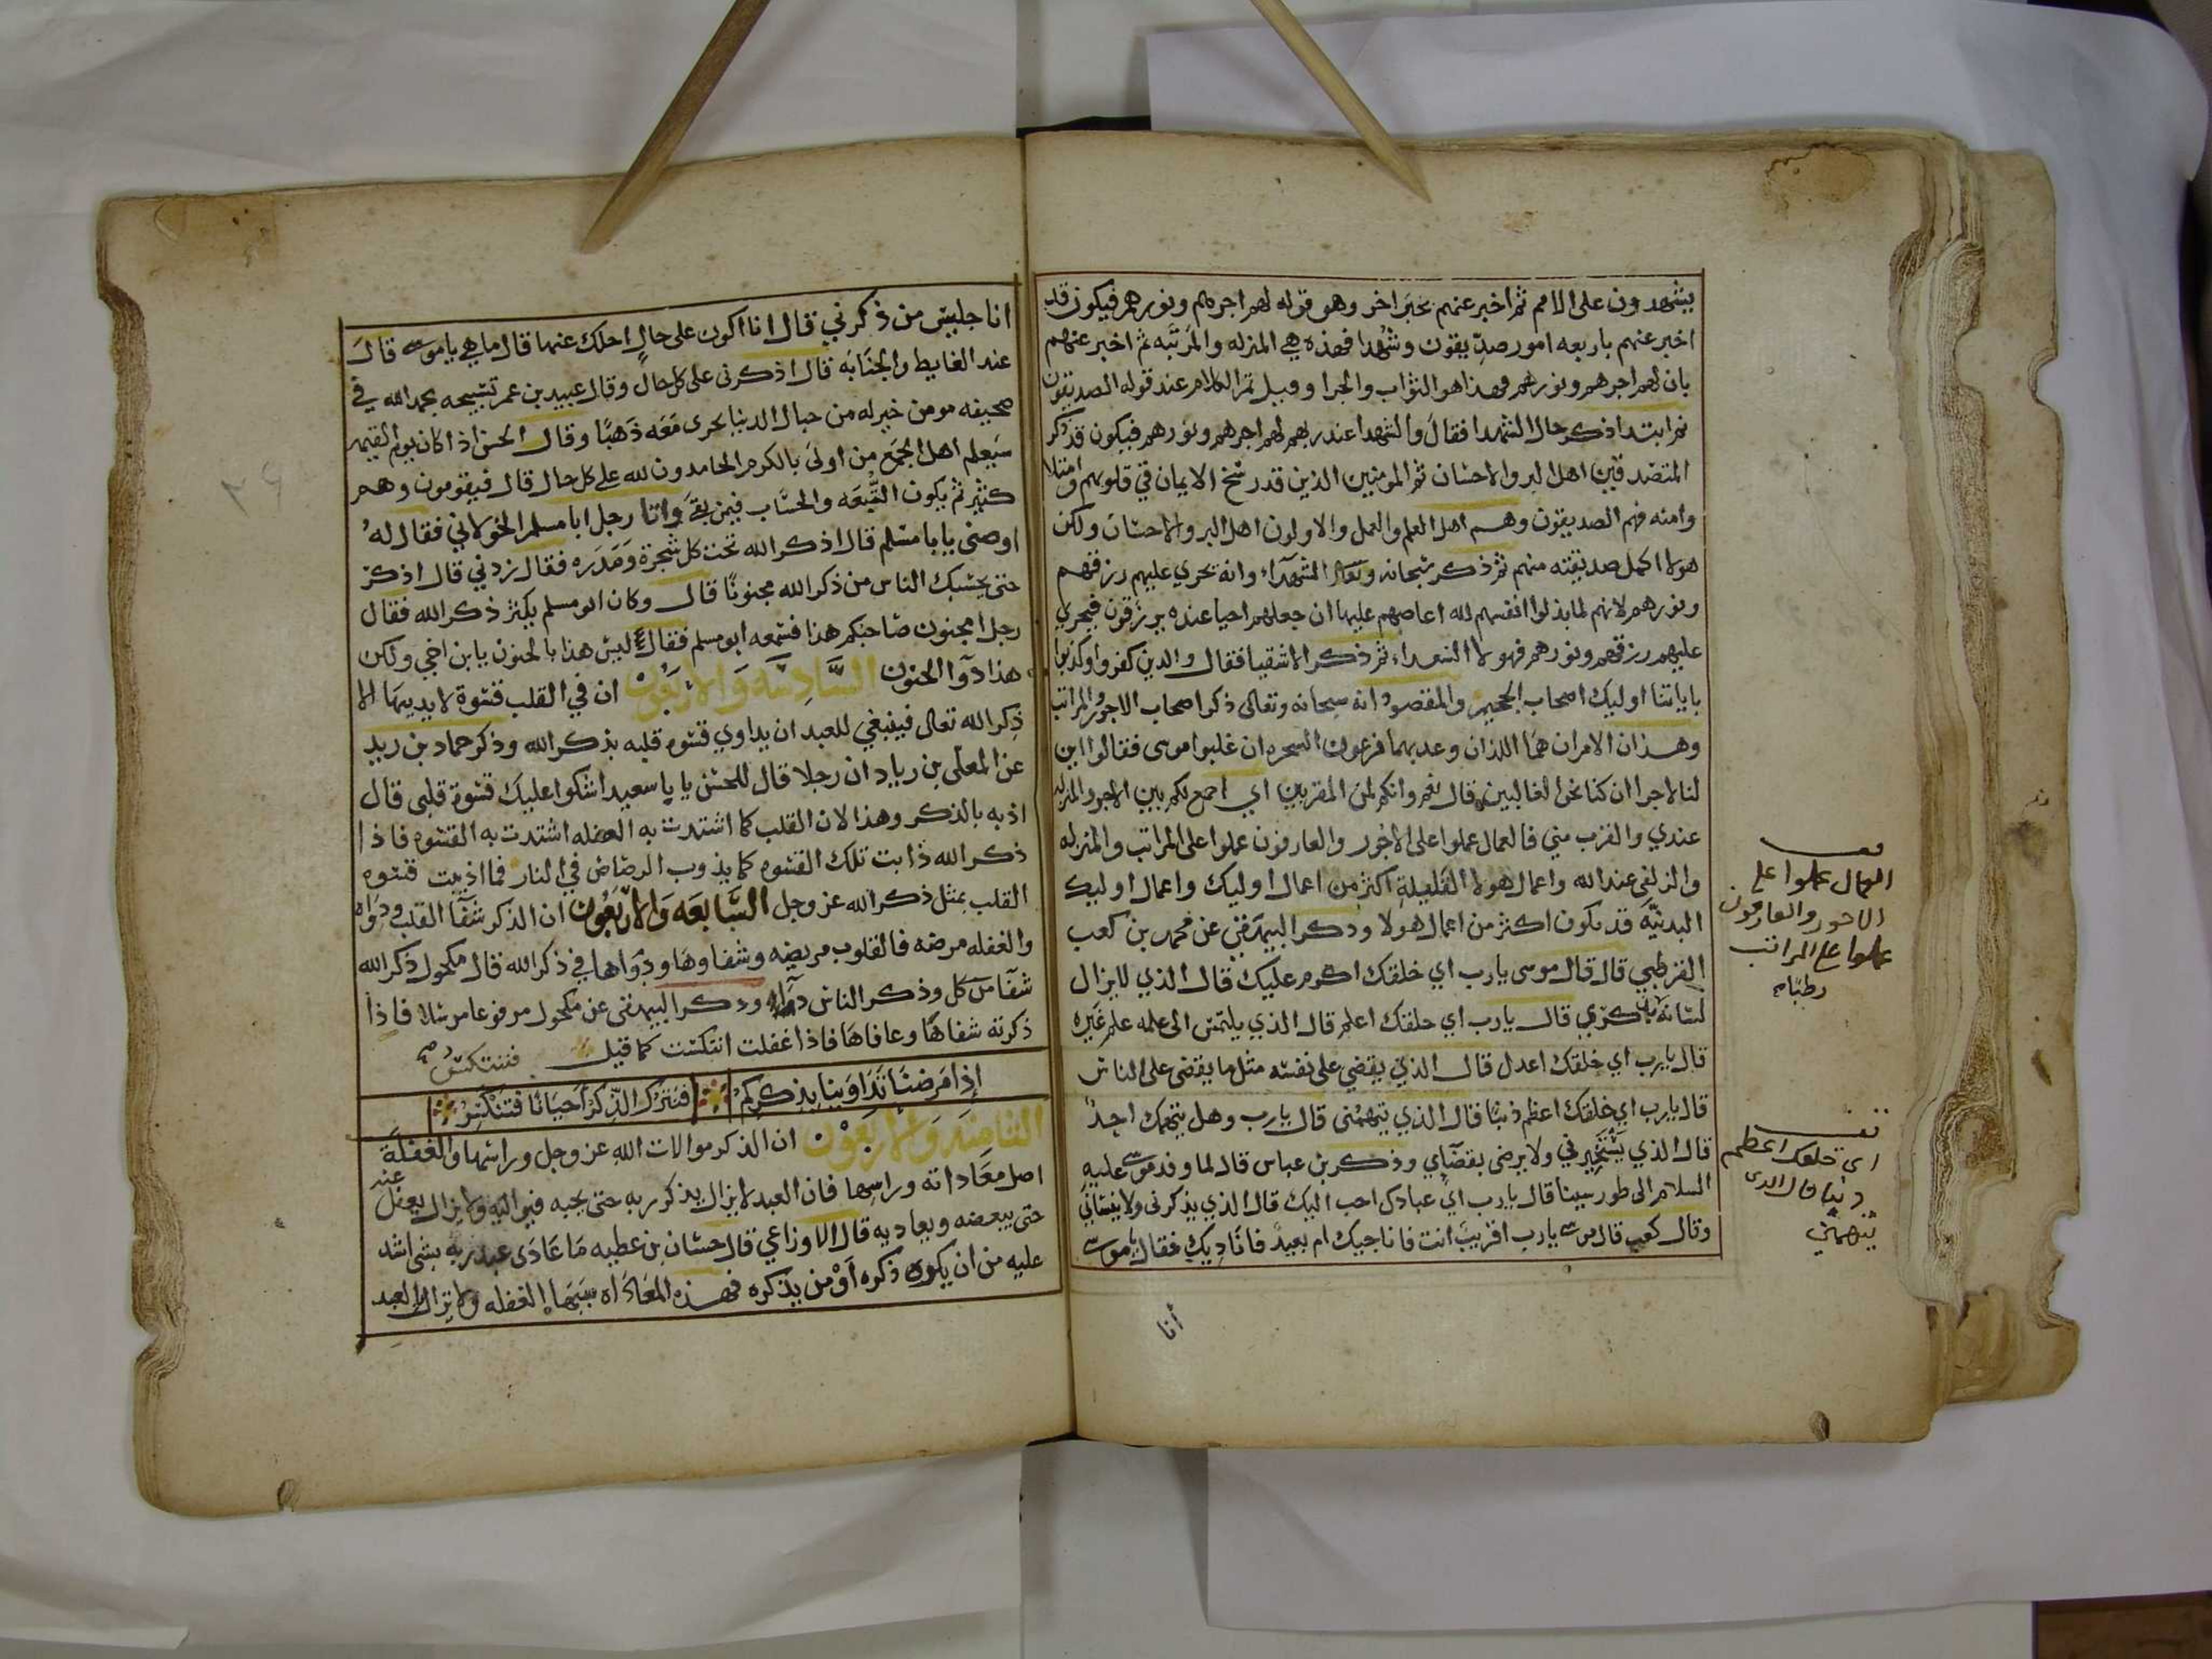 يشهدون على الامم ثم اخبر عنهم بخبر اخر وهو قوله لهم اجرهم ونورهم فيكون قد
اخبر عنهم باربعه امور صديقون وشهدا فهذه هي المنزله والمرتبه ثم اخبر عنهم
بان لهم اجرهم ونورهم فهذا هو الثواب والجزا وقيل تم الكلام عند قوله الصديقون
ثم ابتدا ذكر حال الشهدا فقال والشهدا عند ربهم لهم اجرهم ونورهم فيكون قد ذكر
المتصدقين اهل البر والاحسان ثم المومنين الذين قد رسخ الايمان في قلوبهم وامتلا
وامنه فهم الصديقون وهم اهل العلم والعمل والاولون اهل البر والاحسان ولكن
هولا اكمل صديقته منهم ثم ذكر سبحانه وتعالى الشهداء وانه يجري عليهم رزقهم
ونورهم لانهم لما بذلوا انفسهم لله اعاضهم عليها ان جعلهم احيا عنده يرزقون فيجري
عليهم رزقهم ونورهم فهولا السعداء ثم ذكر الاشقيا فقال والذين كفروا وكذبوا
باياتنا اوليك اصحاب الجحيم والمقصود انه سبحانه وتعالى ذكر اصحاب الاجور والمراتب
وهذان الامران هما اللذان وعد بهما فرعون السحره ان غلبوا موسى فقالوا اين
لنا لاجرا ان كنا نحن الغالبين قال نعم وانكم لمن المقربين اي اجمع لكم بين الاجور والمنزله
عندي والقرب مني فالعمال عملوا على الاجور والعارفون عملوا على المراتب والمنزله
والزلفى عند الله واعمال هولا القلبيله اكثر من اعمال اوليك واعمال اوليك
البدنيه قد يكون اكثر من اعمال هولا وذكر البيهقي عن محمد بن كعب
القرظي قال قال موسى يارب اي خلقك اكرم عليك قال الذي لايزال
لسانه بذكري قال يارب اي خلقك اعلم قال الذي يلتمس الى علمه علم غيره
قال يارب اي خلقك اعدل قال الذي يقضي على نفسه مثل ما يقضي على الناس
قال يارب اي خلقك اعظم ذنبا قال الذي يتهمني قال يارب وهل يتهمك احد
قال الذي يستخيرني ولا يرضى بقضآي وذكر بن عباس قال لما وفد موسى عليه
السلام الى طور سينا قال يارب اي عبادك احب اليك قال الذي يذكرني ولا ينساني
وقال كعب قال موسى يارب اقريب انت فاناجيك ام بعيد فاناديك فقال ياموسى
انا
العمال عملوا على
الاجور والعارفون
عملوا على المراتب
اي خلقك اعظم
ذنبا قال الذي
يتهمني
انا جليس من ذكرني قال انا اكون على حال احلك عنها قال ما هي ياموسى قال
عند الغايط والجنابه قال اذكرني على كل حال وقال عبيد بن عمر تسبيحه بحمد الله في
صحيفه مومن خير له من جبال الدنيا تجري معه ذهبا وقال الحسن اذا كان يوم القيمه
سيعلم اهل الجمع من اولى بالكرم الحامدون لله على كل حال قال فيقومون وهم
كثير ثم يكون التبعه والحساب فيمن بقي واتا رجل ابا مسلم الخولاني فقال له
اوصني يابا مسلم قال اذكر الله تحت كل شجرة ومدره فقال زدني قال اذكر
حتى يحسبك الناس من ذكر الله مجنونا قال وكان ابو مسلم يكثر ذكر الله فقال
رجل امجنون صاحبكم هذا فسمعه ابو مسلم فقال ليس هذا بالجنون يابن اخي ولكن
هذا دوآ الجنون السادسه والاربعون ان في القلب قسوة لا يديبها الا
ذكر الله تعالى فينبغي للعبد ان يداوي قسوه قلبه بذكر الله وذكر حماد بن زيد
عن المعلى بن زياد ان رجلا قال للحسن يا با سعيد اشكوا عليك قسوة قلبي قال
اذبه بالذكر وهذا لان القلب كما اشتدت به الغفله اشتدت به القسوه فاذا
ذكر الله ذابت تلك القسوه كما يذوب الرصاص في النار فما اذيبت قسوه
القلب بمثل ذكر الله عز وجل السابعه والاربعون ان الذكر شفآ القلب ودواه
والغفله مرضه فالقلوب مريضه وشفاوها ودواها في ذكر الله قال مكحول ذكر الله
شفآ من كل وذكر الناس دآء وذكر البيهقي عن مكحول مرفوعا مرسلا فاذا
ذكرته شفاها وعافاها فاذا غفلت انتكست كما قيل
فننتكس صح
إذا مرضنا تداوينا بذكركم فنترك الذكر أحيانا فتنكس
الثامنه والاربعون ان الذكر موالات الله عز وجل وراسها والغفلة
اصل معاداته وراسها فان العبد لايزال يذكر ربه حتى يحبه فيواليه ولا يزال يغفل عنه
حتى يبغضه ويعاديه قال الاوزاعي قال حسان بن عطيه ما عادى عبد ربه بشي اشد
عليه من ان يكره ذكره أو من يذكره فهذه المعاداه سببها الغفله ولا تزال بالعبد